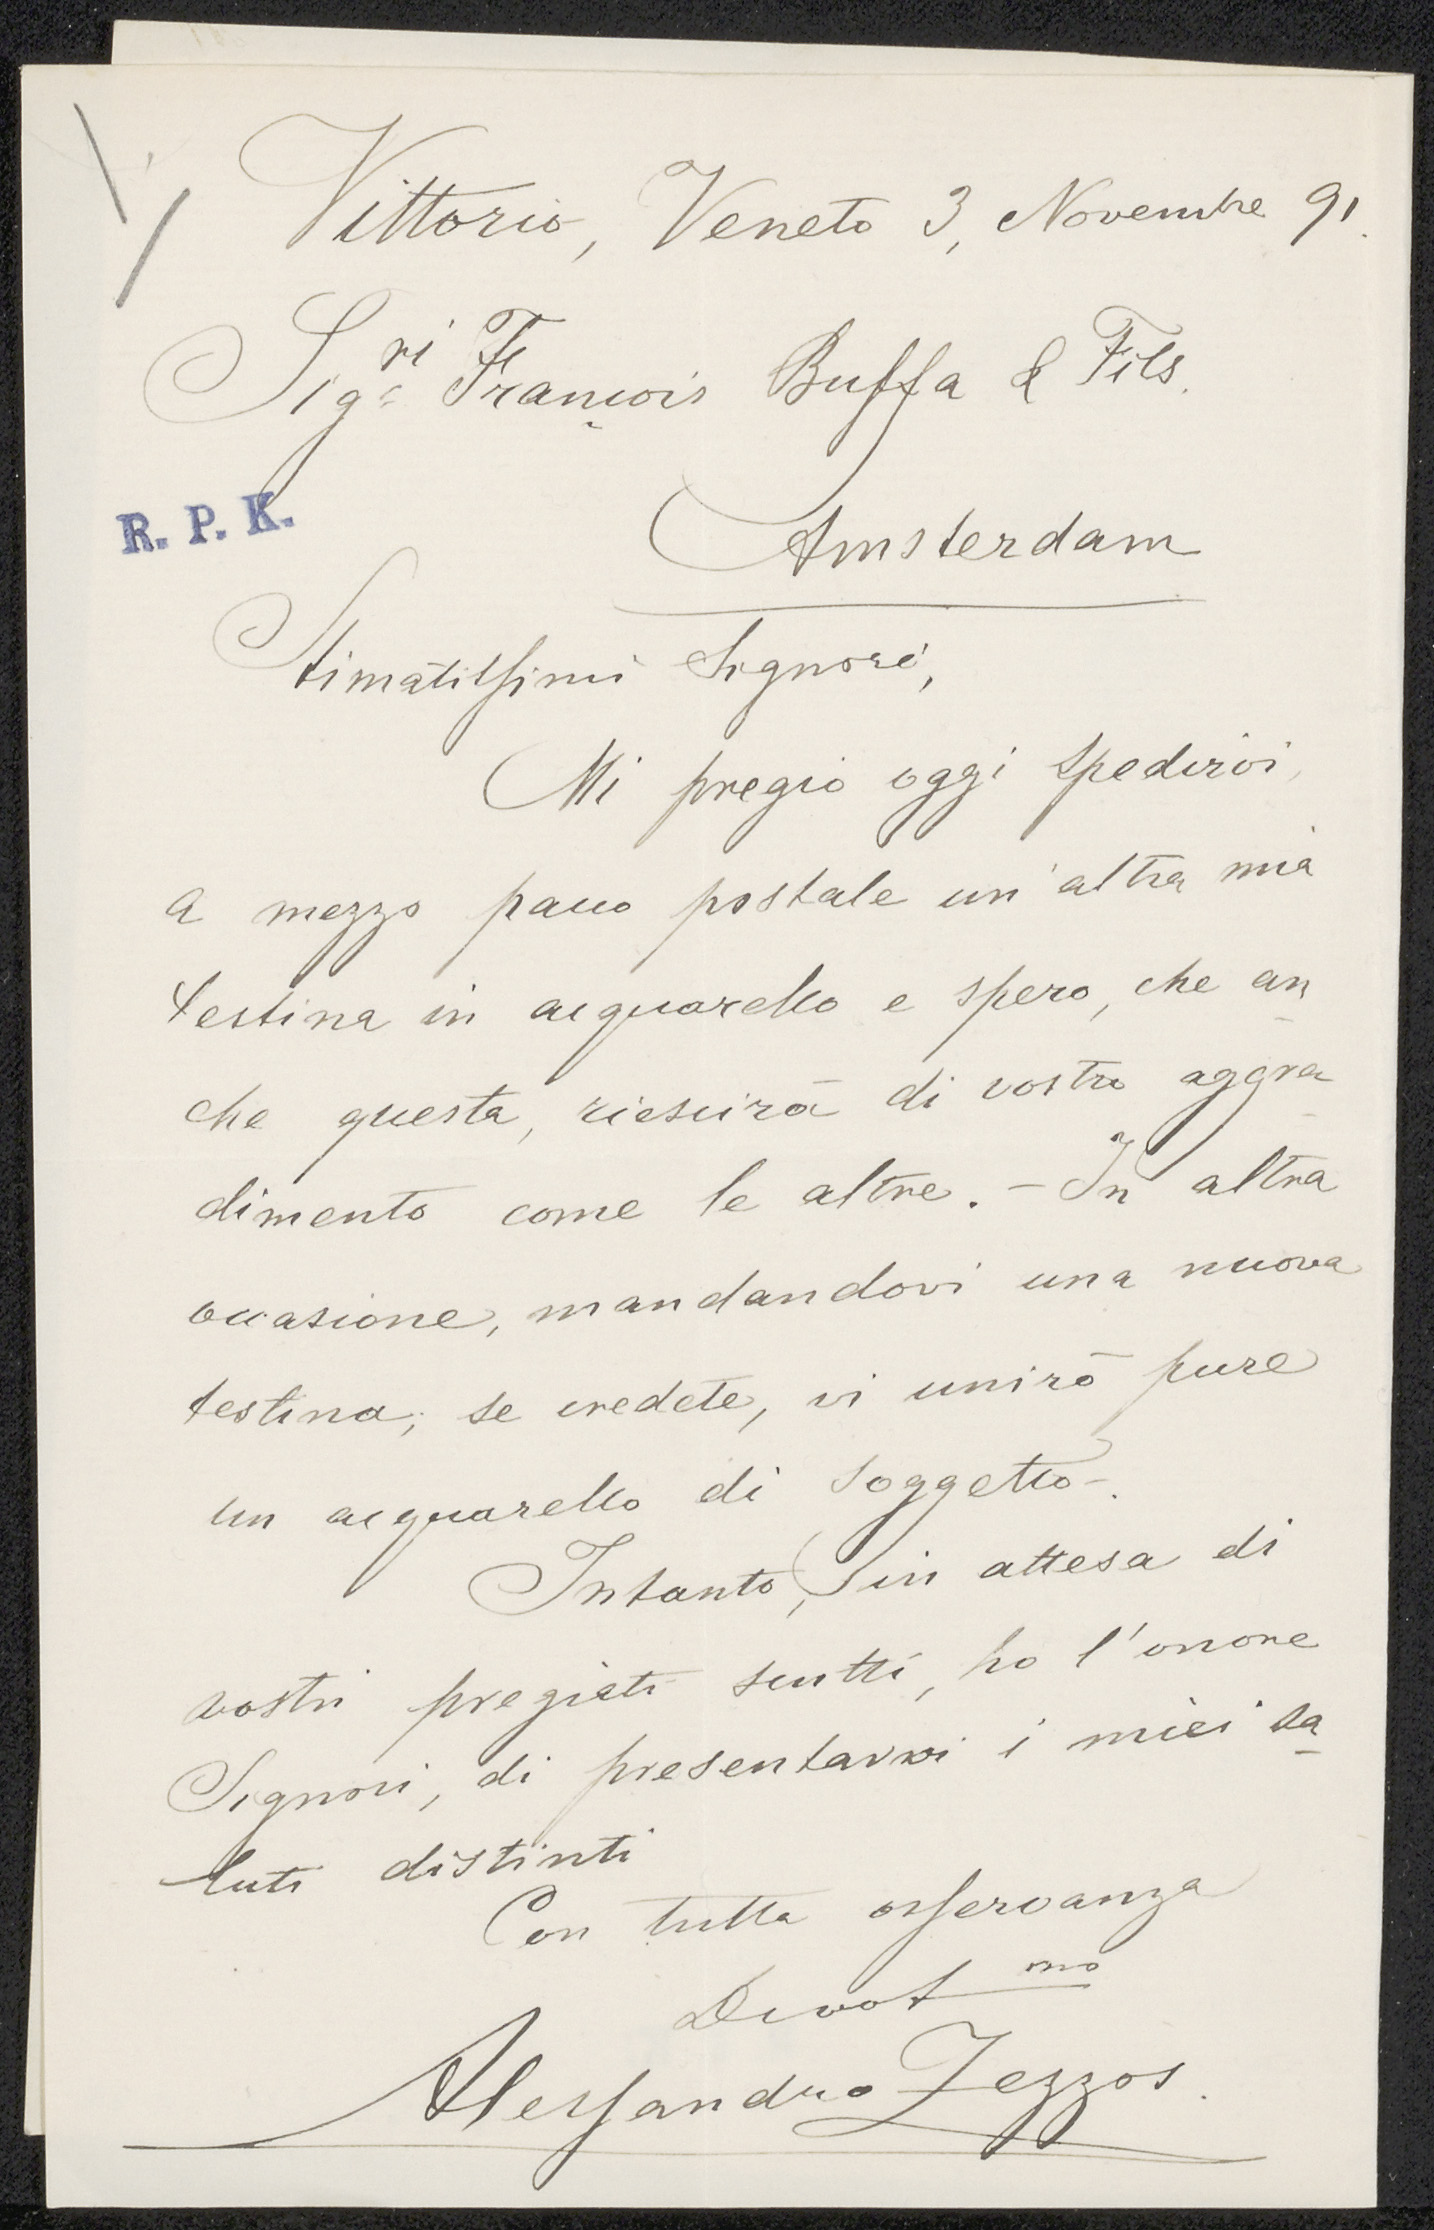 Vittorio, Veneto 3, Novembre 91.
Sig.ri François Buffa & Fils.
R. P. K.
Amsterdam
Stimatissimi Signori,
Mi pregio oggi spedirvi,
a mezzo pacco postale un'altra mia
testina in acquarello e spero, che an
che questa, riescirà di vostro aggra
dimento come le altre. - In altra
occasione, mandandovi una nuova
testina; se credete, vi unirò pure
un acquarello di soggetto -.
Intanto, in attesa di
vostri pregiati scritti, ho l'onore
Signori, di presentarvi i miei sa
luti distinti
Con tutta osservanza
Devotmo
Alessandro Zezzos.